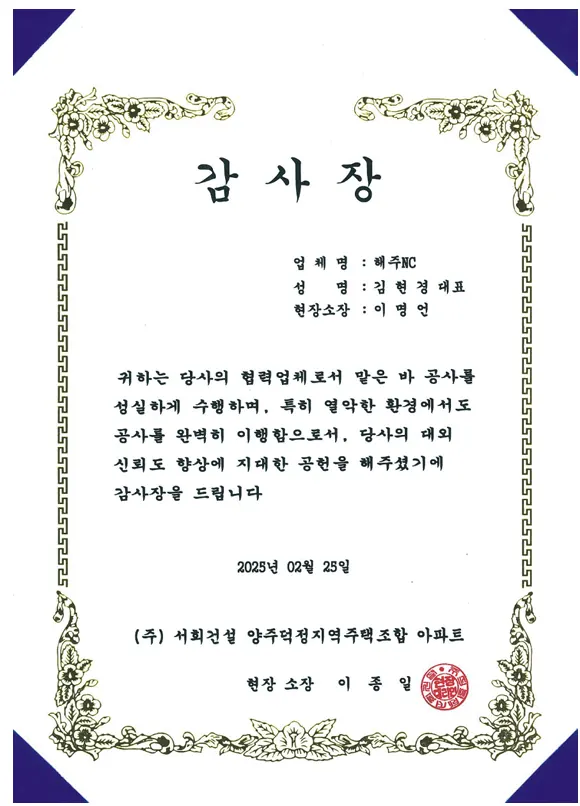 감 사 장
업 체 명 : 해주NC
성 명 : 김 현 경 대 표
현장소장 : 이 명 언
귀하는 당사의 협력업체로서 맡은 바 공사를
성실하게 수행하며, 특히 열악한 환경에서도
공사를 완벽히 이행함으로서, 당사의 대외
신뢰도 향상에 지대한 공헌을 해주셨기에
감사장을 드립니다
2025년 02월 25일
(주) 서희건설 양주덕정지역주택조합 아파트
현장 소장 이 종 일